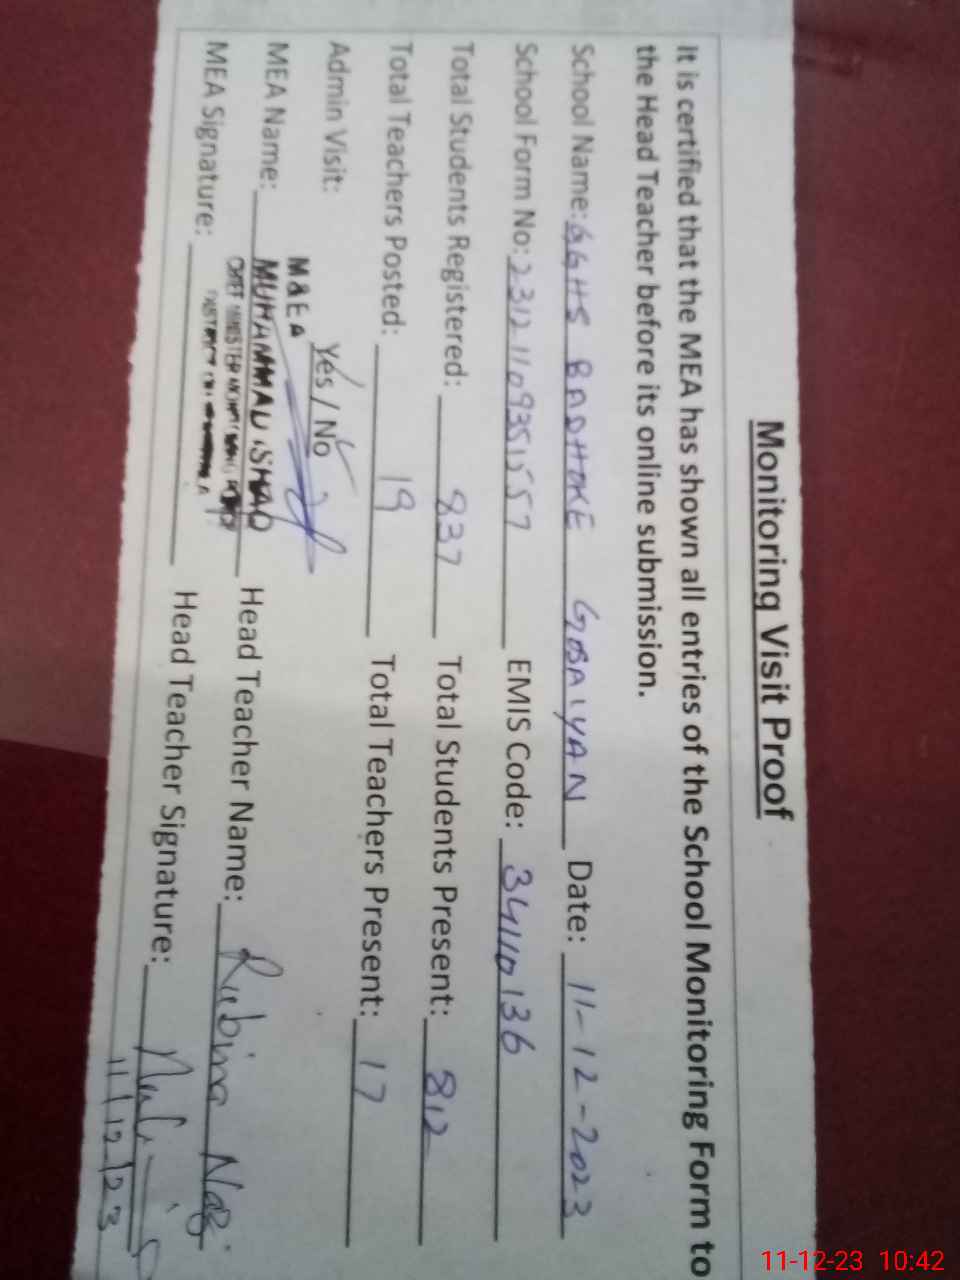 Monitoring Visit Proof
It is certified that the MEA has shown all entries of the School Monitoring Form to
the Head Teacher before its online submission.
School Name: GGHS BADHOKE GOBAIYAN Date: 11-12-2023
School Form No: 231211093515557 EMIS Code: 34110136
Total Students Registered: 837 Total Students Present: 812
Total Teachers Posted: 19 Total Teachers Present: 17
Admin Visit: Yes / No
M&EA
MEA Name: MUHAMMAD ISHAQ Head Teacher Name: Rubina Naz
CHIEF MINISTER MONITORING FORCE
MEA Signature: DISTRICT Head Teacher Signature:
11/12/23
11-12-23 10:42